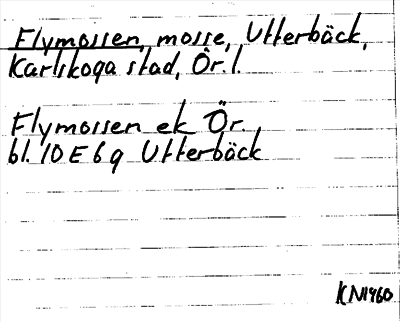 Flymossen, mosse, Utterbäck,
Karlskoga stad, Ör. l.
Flymossen ek Ör.
bl. 10 E 6 g Utterbäck
KN1960